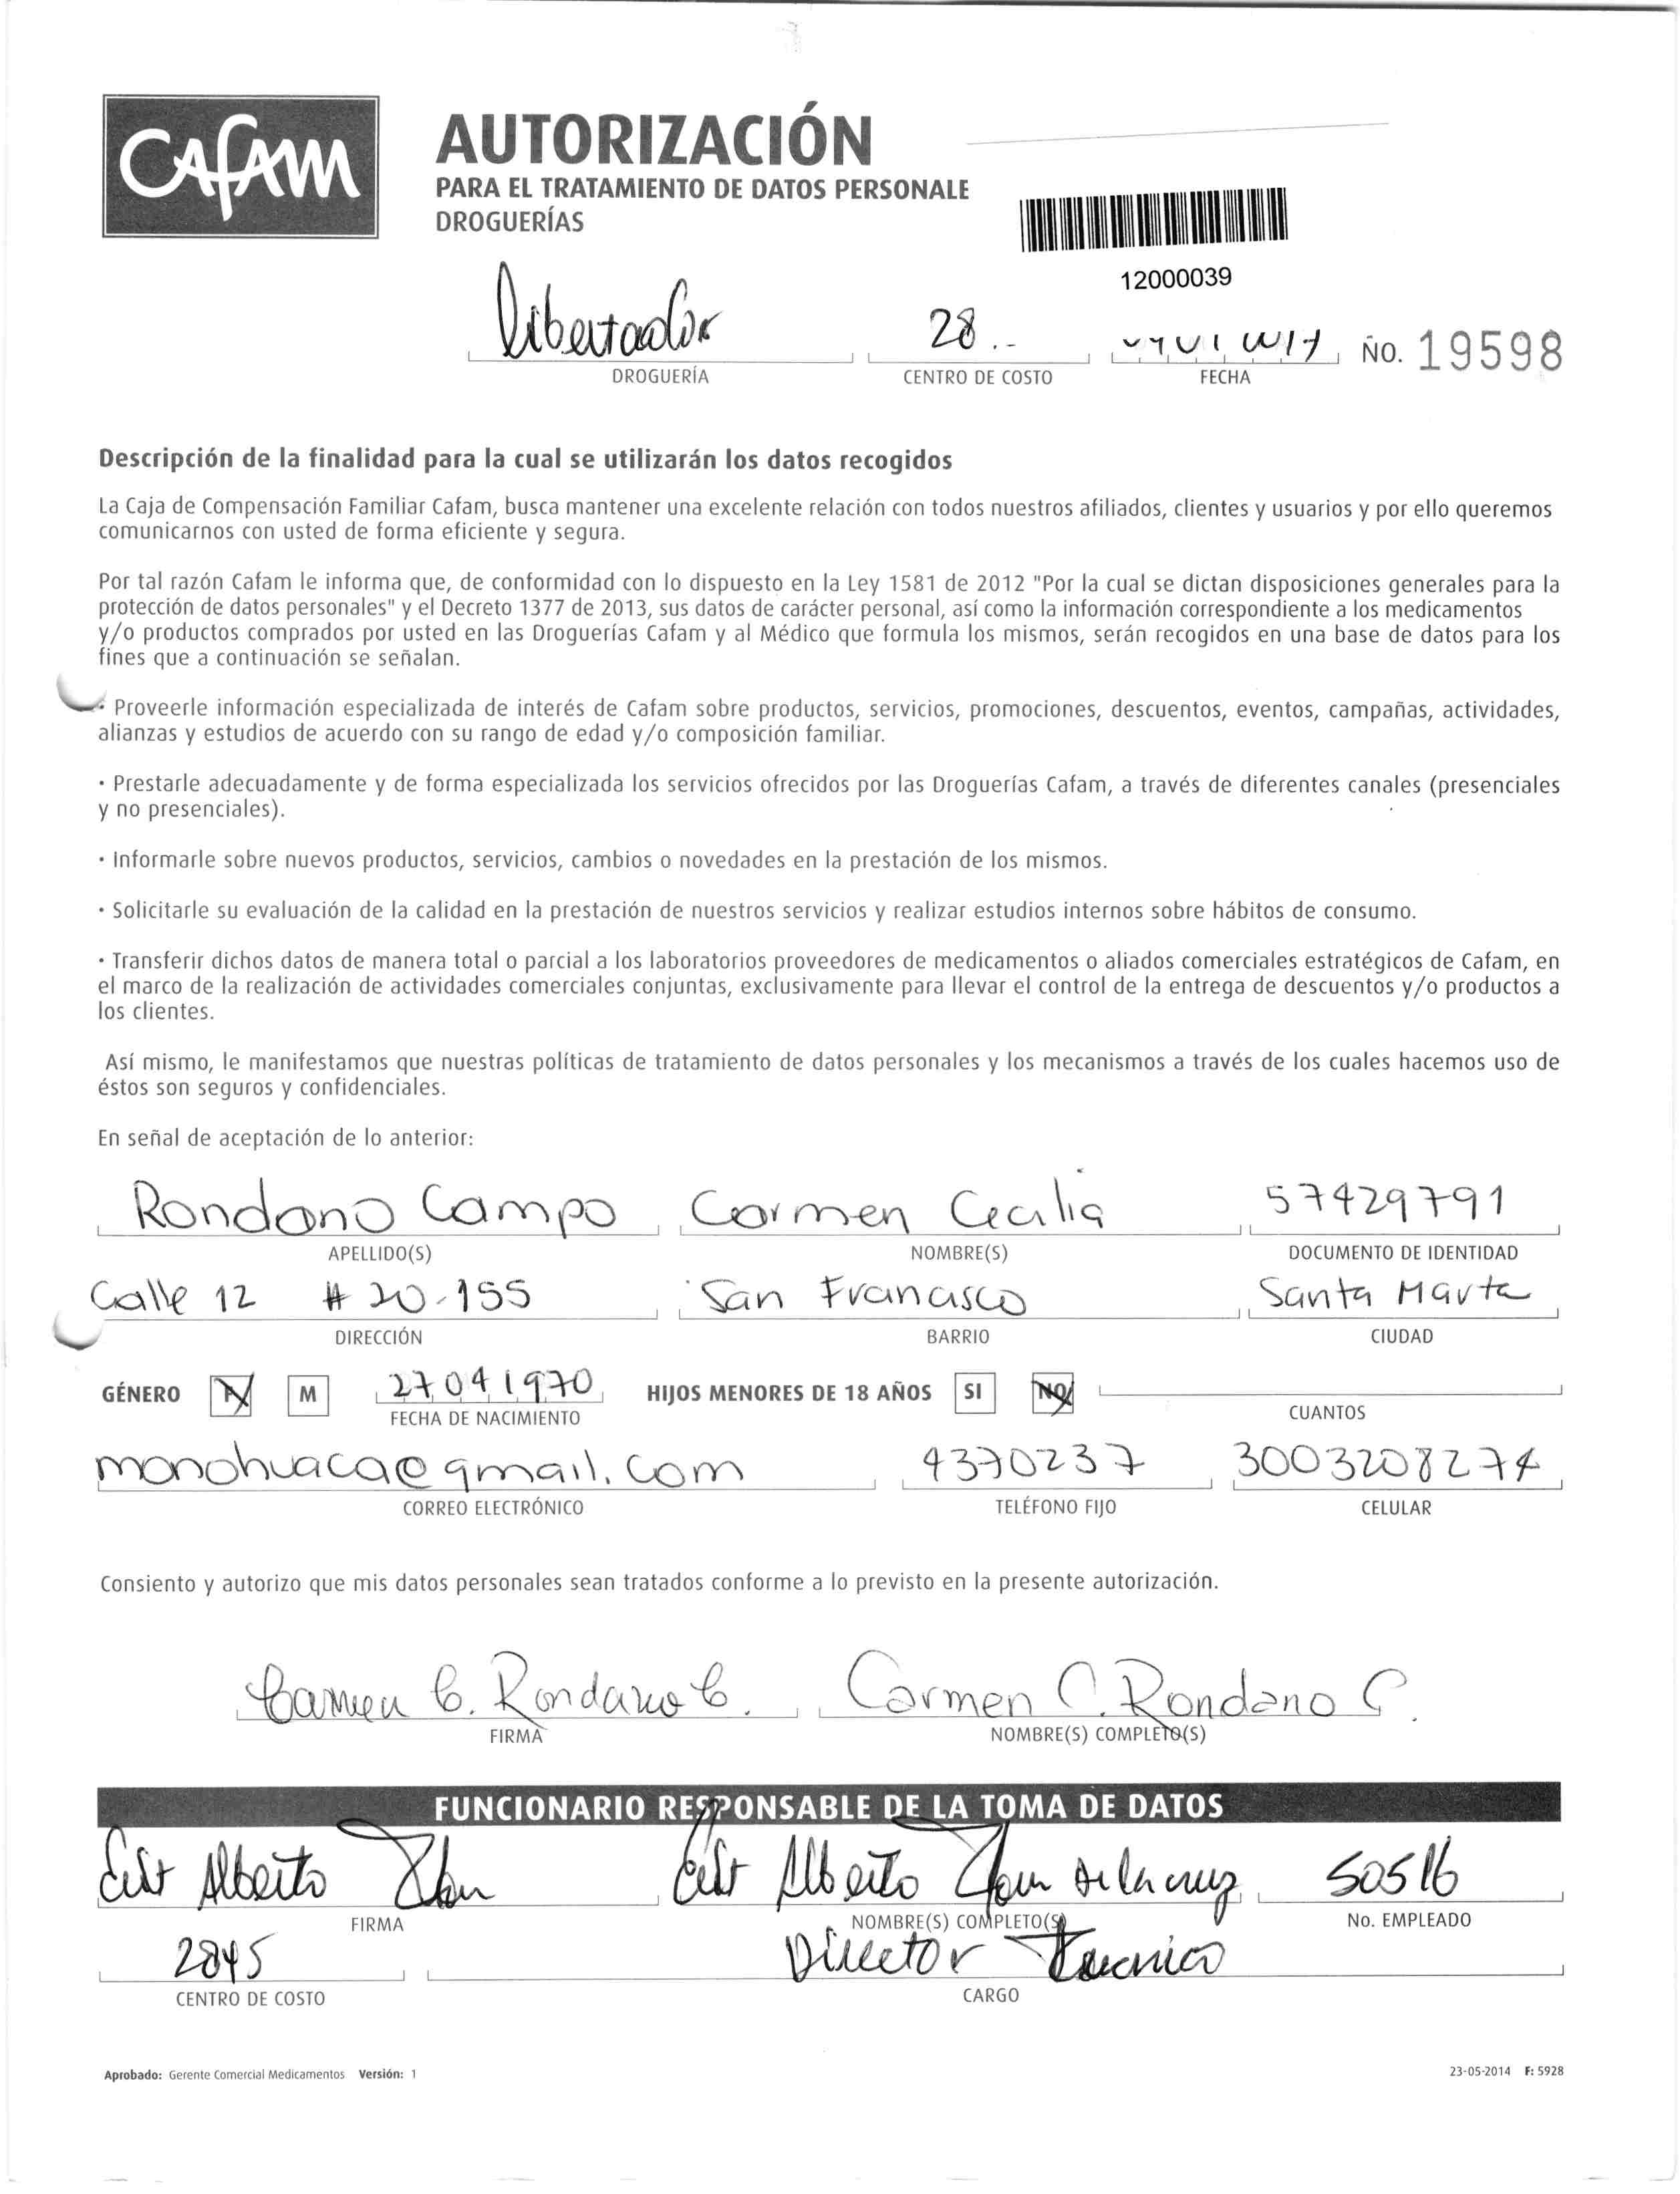 CAFAM
AUTORIZACIÓN
PARA EL TRATAMIENTO DE DATOS PERSONALE
DROGUERÍAS
12000039
Libertador 28 No. 19598
DROGUERÍA CENTRO DE COSTO FECHA
Descripción de la finalidad para la cual se utilizarán los datos recogidos
La Caja de Compensación Familiar Cafam, busca mantener una excelente relación con todos nuestros afiliados, clientes y usuarios y por ello queremos
comunicarnos con usted de forma eficiente y segura.
Por tal razón Cafam le informa que, de conformidad con lo dispuesto en la Ley 1581 de 2012 "Por la cual se dictan disposiciones generales para la
protección de datos personales" y el Decreto 1377 de 2013, sus datos de carácter personal, así como la información correspondiente a los medicamentos
y/o productos comprados por usted en las Droguerías Cafam y al Médico que formula los mismos, serán recogidos en una base de datos para los
fines que a continuación se señalan.
· Proveerle información especializada de interés de Cafam sobre productos, servicios, promociones, descuentos, eventos, campañas, actividades,
alianzas y estudios de acuerdo con su rango de edad y/o composición familiar.
· Prestarle adecuadamente y de forma especializada los servicios ofrecidos por las Droguerías Cafam, a través de diferentes canales (presenciales
y no presenciales).
· Informarle sobre nuevos productos, servicios, cambios o novedades en la prestación de los mismos.
· Solicitarle su evaluación de la calidad en la prestación de nuestros servicios y realizar estudios internos sobre hábitos de consumo.
· Transferir dichos datos de manera total o parcial a los laboratorios proveedores de medicamentos o aliados comerciales estratégicos de Cafam, en
el marco de la realización de actividades comerciales conjuntas, exclusivamente para llevar el control de la entrega de descuentos y/o productos a
los clientes.
Así mismo, le manifestamos que nuestras políticas de tratamiento de datos personales y los mecanismos a través de los cuales hacemos uso de
éstos son seguros y confidenciales.
En señal de aceptación de lo anterior:
Rondano Campo Carmen Cecilia 57429791
APELLIDO(S) NOMBRE(S) DOCUMENTO DE IDENTIDAD
Calle 12 # 20-155 San Francisco Santa Marta
DIRECCIÓN BARRIO CIUDAD
GÉNERO F M 27041970 HIJOS MENORES DE 18 AÑOS SI NO
FECHA DE NACIMIENTO CUANTOS
monohuaca@gmail.com 4370237 3003208274
CORREO ELECTRÓNICO TELÉFONO FIJO CELULAR
Consiento y autorizo que mis datos personales sean tratados conforme a lo previsto en la presente autorización.
Carmen C. Rondano C. Carmen C. Rondano C.
FIRMA NOMBRE(S) COMPLETO(S)
FUNCIONARIO RESPONSABLE DE LA TOMA DE DATOS
Alberto Alberto de la cruz 50516
FIRMA NOMBRE(S) COMPLETO(S) No. EMPLEADO
2845 Director Tecnico
CENTRO DE COSTO CARGO
Aprobado: Gerente Comercial Medicamentos Versión: 1 23-05-2014 F: 5928